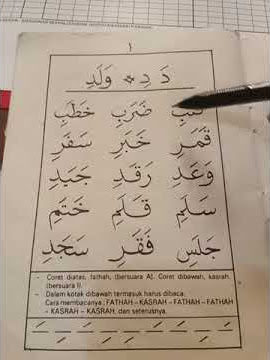 ١
دَ دِ ※ وَلَدِ
ضَرَبِ خَطَبِ
قَمَرِ خَبَرِ سَفَرِ
وَعَدِ رَقَدِ جَيَدِ
سَلَمِ قَلَمِ خَتَمِ
جَلَسِ فَقَرِ سَجَدِ
- Coret diatas, fathah, (bersuara A). Coret dibawah, kasrah, (bersuara I).
- Dalam kotak dibawah termasuk harus dibaca.
Cara membacanya : FATHAH - KASRAH - FATHAH - FATHAH
- KASRAH - KASRAH, dan seterusnya.